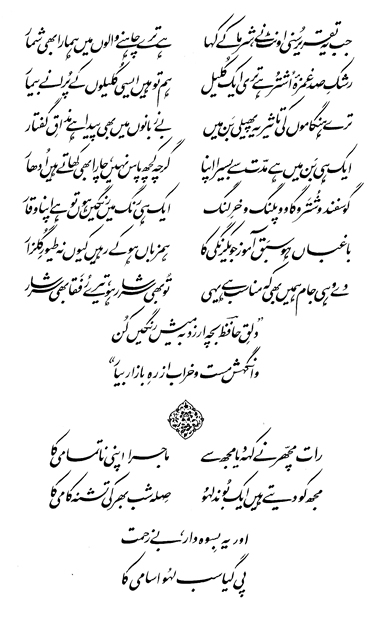 جب یہ تقریر سنی اونٹ نے شرما کے کہا ہے ترے چاہنے والوں میں ہمارا بھی شمار
رشکِ صد غمزۂ اشتر ہے تری ایک کلیل ہم تو ہیں ایسی کلیلوں کے پرانے بیمار
ترے ہنگاموں کی تاثیر یہ پھیلی بن میں بے زبانوں میں بھی پیدا ہے مذاقِ گفتار
ایک ہی بن میں ہے مدت سے بسیرا اپنا گرچہ کچھ پاس نہیں، چارا بھی کھاتے ہیں ادھار
گوسفند و شتر و گاو و پلنگ و خرِ لنگ ایک ہی رنگ میں رنگیں ہوں تو ہے اپنا وقار
باغباں ہو سبق آموز جو یکرنگی کا ہمزباں ہو کے رہیں کیوں نہ طیورِ گلزار
دے وہی جام ہمیں بھی کہ مناسب ہے یہی تو بھی سرشار ہو، تیرے رفقا بھی سرشار
"دلقِ حافظ بچہ ارزد بہ میش رنگیں کن
وانگہش مست و خراب از رہِ بازار بیار"
رات مچھر نے کہہ دیا مجھ سے ماجرا اپنی ناتمامی کا
مجھ کو دیتے ہیں ایک بوند لہو صلہ شب بھر کی تشنہ کامی کا
اور یہ بسوہ دار، بے زحمت
پی گیا سب لہو اسامی کا